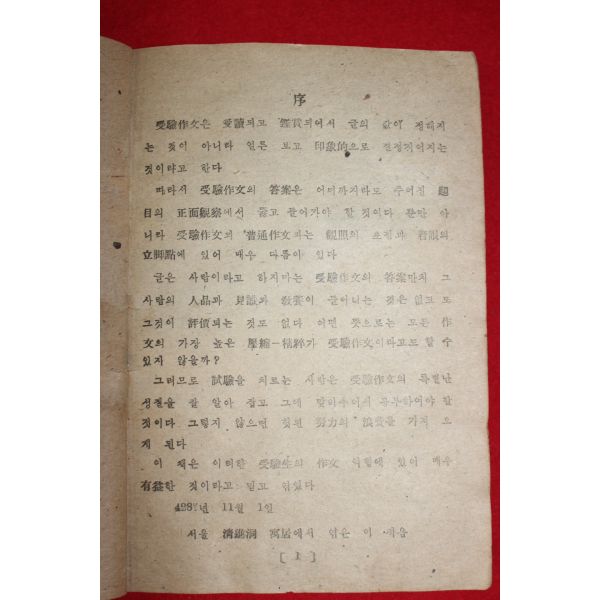 序
受驗作文은 愛讀되고 鑑賞되에서 글의 값이 정해지
는 것이 아니라 얼른 보고 印象的으로 결정지어지는
것이라고 한다
따라서 受驗作文의 答案은 어디까지라도 주어진 題
目의 正面觀察에서 뚫고 들어가야 할 것이다 뿐만 아
니라 受驗作文의 普通作文과는 觀照의 초점과 着眼의
立脚點에 있어 매우 다름이 있다
글은 사람이라고 하지마는 受驗作文의 答案만치 그
사람의 人品과 見識과 敎養이 들어나는 것은 없고 또
그것이 評價되는 것도 없다 어떤 뜻으로는 모든 作
文의 가장 높은 壓縮—精粹가 受驗作文이라고도 할 수
있지 않을까?
그러므로 試驗을 치르는 사람은 受驗作文의 특별난
성질을 잘 알아 잡고 그에 맞하추어서 공부하여야 할
것이다 그렇지 않으면 헛된 努力의 浪費를 가져 오
게 된다
이 책은 이러한 受驗生의 作文 시험에 있어 매우
有益한 것이라고 믿고 엮었다
428 년 11월 1일
서울 淸進洞 寓居에서 엮은 이 적음
[ 1 ]